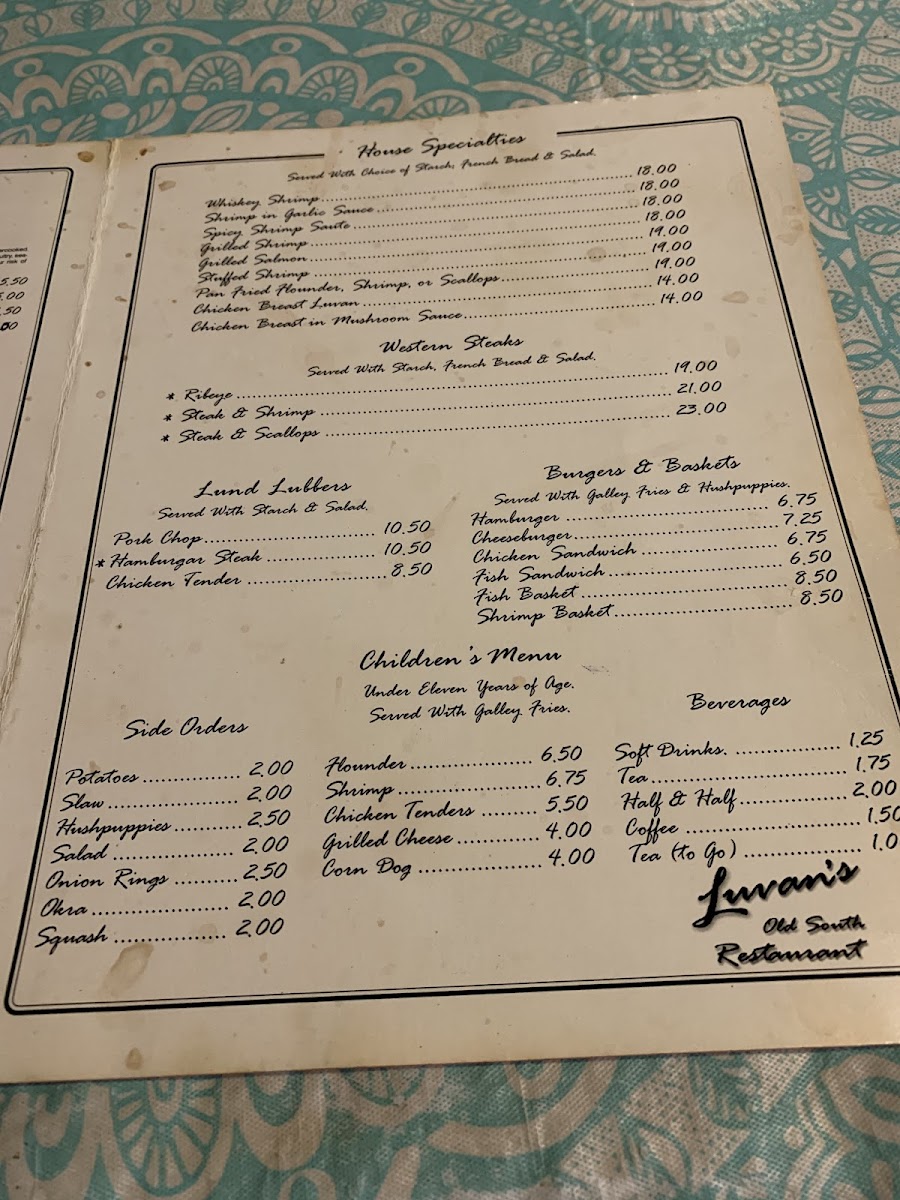 r risk of
5.50
.50
House Specialties
Served With Choice of Starch, French Bread & Salad.
Whiskey Shrimp 18.00
Shrimp in Garlic Sauce 18.00
Spicy Shrimp Saute 18.00
Grilled Shrimp 18.00
Grilled Salmon 19.00
Stuffed Shrimp 19.00
Pan Fried Flounder, Shrimp, or Scallops 19.00
Chicken Breast Luvan 14.00
Chicken Breast in Mushroom Sauce 14.00
Western Steaks
Served With Starch, French Bread & Salad.
* Ribeye 19.00
* Steak & Shrimp 21.00
* Steak & Scallops 23.00
Lund Lubbers
Served With Starch & Salad.
Pork Chop 10.50
* Hamburgar Steak 10.50
Chicken Tender 8.50
Burgers & Baskets
Served With Galley Fries & Hushpuppies.
Hamburger 6.75
Cheeseburger 7.25
Chicken Sandwich 6.75
Fish Sandwich 6.50
Fish Basket 8.50
Shrimp Basket 8.50
Side Orders
Potatoes 2.00
Slaw 2.00
Hushpuppies 2.50
Salad 2.00
Onion Rings 2.50
Okra 2.00
Squash 2.00
Children's Menu
Under Eleven Years of Age.
Served With Galley Fries.
Flounder 6.50
Shrimp 6.75
Chicken Tenders 5.50
Grilled Cheese 4.00
Corn Dog 4.00
Beverages
Soft Drinks. 1.25
Tea 1.75
Half & Half 2.00
Coffee 1.50
Tea (to Go) 1.0
Luvan's
Old South
Restaurant